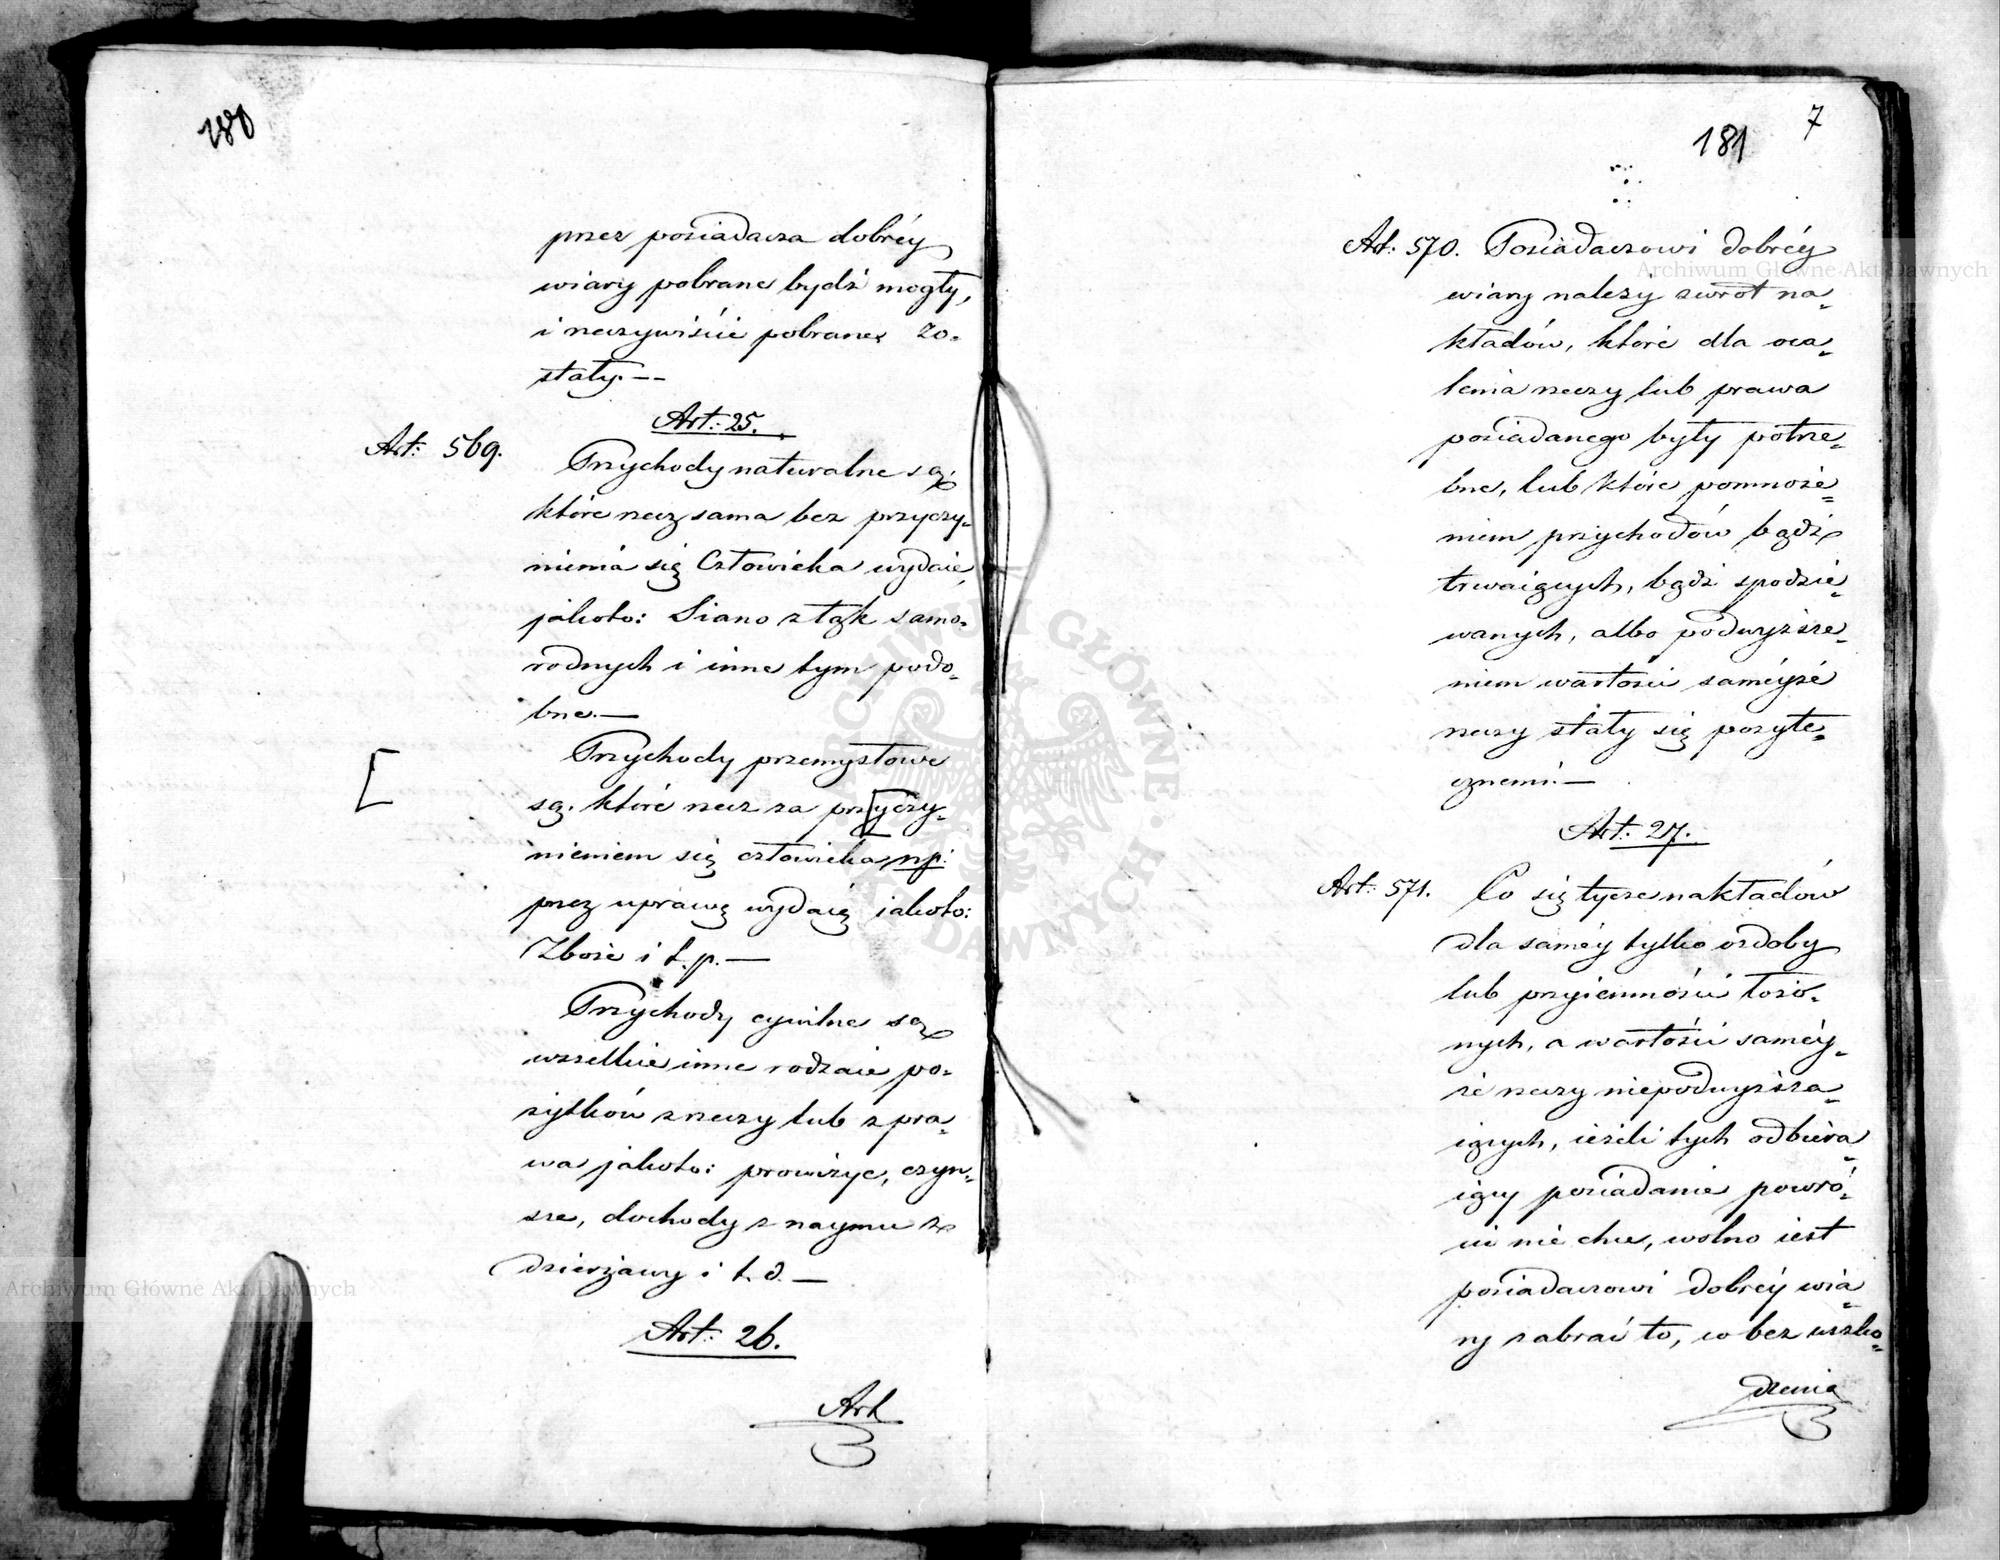 180
przez posiadacza dobréy
wiary pobrane bydź mogły,
i rzeczywiście pobrane zo-
stały.—
Art: 25.
Art: 569.
Przychody naturalne są,
które rzecz sama bez przyczy-
nienia się Człowieka wydaie,
jakoto: Siano z łąk samo-
rodnych i inne tym podo-
bne.—
Przychody przemysłowe
są, które rzecz za przyczy-
nieniem się człowieka np:
przez uprawę wydaię iakoto:
Zboże i t. p.—
Przychody cywilne są
wszelkie inne rodzaie po-
żytków z rzeczy lub z pra-
wa jakoto: prowizye, czyn-
sze, dochody z naymu z
dzierżawy i t. d.—
Art: 26.
Art
7
181
Art: 570. Posiadaczowi dobréy
wiary należy zwrot na-
kładów, które dla oca-
lenia rzeczy lub prawa
posiadanego były potrze-
bne, lub które pomnoże-
niem przychodów bądź
trwaiących, bądź spodzie-
wanych, albo podwyższe-
niem wartości saméyże
rzeczy stały się pożyte-
cznemi.—
Art: 27.
Art: 571. Co się tycze nakładów
dla saméy tylko ozdoby
lub przyiemności łożo-
nych, a wartości saméy-
że rzeczy niepodwyższa-
iących, ieżeli tych odbiera-
iący posiadanie powró-
cić nie chce, wolno iest
posiadaczowi dobréy wia-
ry zabrać to, co bez uszko-
dzenia
Archiwum Główne Akt Dawnych
Archiwum Główne Akt Dawnych
ARCHIWUM GŁÓWNE AKT DAWNYCH